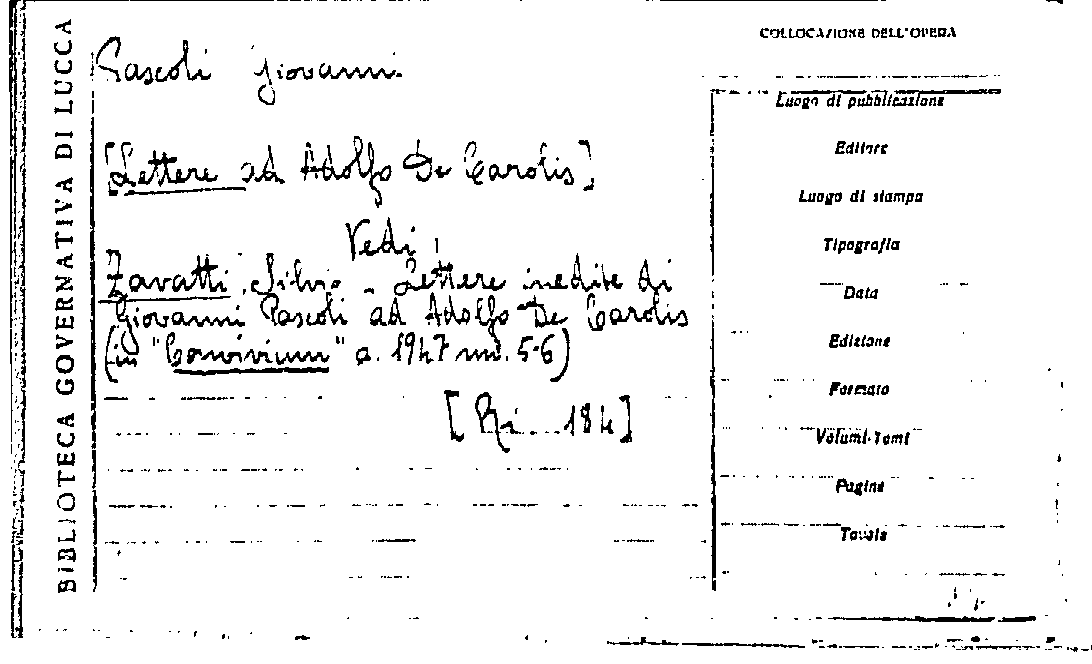 BIBLIOTECA GOVERNATIVA DI LUCCA
Pascoli Giovanni
[Lettere ad Adolfo De Carolis]
Vedi
Zavatti, Silvio - Lettere inedite di
Giovanni Pascoli ad Adolfo De Carolis
(in "Convivium" a. 1947 nn. 5-6)
[Ri. 184]
COLLOCAZIONE DELL'OPERA
Luogo di pubblicazione
Editore
Luogo di stampa
Tipografia
Data
Edizione
Formato
Volumi-Tomi
Pagine
Tavole